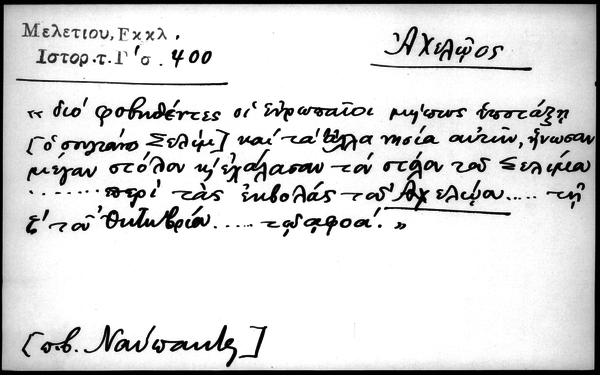 Μελετίου, Εκκλ.
Ἱστορ.τ.Γ΄σ. 400
Ἀχελῷος
« διό φοβηθέντες οἱ εὐρωπαῖοι μήπως ὑποτάξῃ
[ὁ σουλτάνο Σελίμ] καί τά ἄλλα νησία αὐτῶν, ἥνωσαν
μέγαν στόλον κ᾽ ἐχάλασαν τόν στόλον τοῦ Σελίμια
........ περί τὰς ἐκβολάς τοῦ Ἀχελῴου..... τῇ
ζ΄ τοῦ Ὀκτωβρίου ..... ͵αφοα΄. »
[π.β. Ναύπακτος]